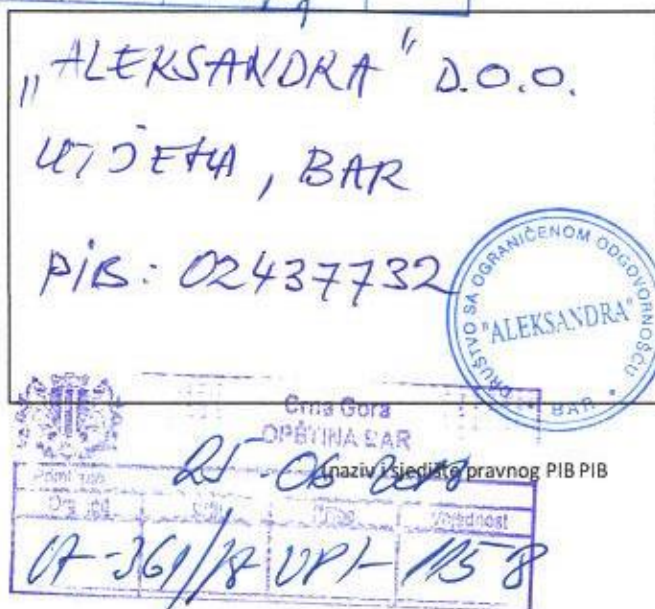 „ALEKSANDRA" D.O.O.
UTJEHA, BAR
PIB: 02437732
DRUŠTVO SA OGRANIČENOM ODGOVORNOŠĆU
"ALEKSANDRA"
* BAR *
Crna Gora
OPŠTINA BAR
25-06-2018
(naziv i sjedište pravnog PIB PIB
Vrijednost
07-361/18 UPI- 1158